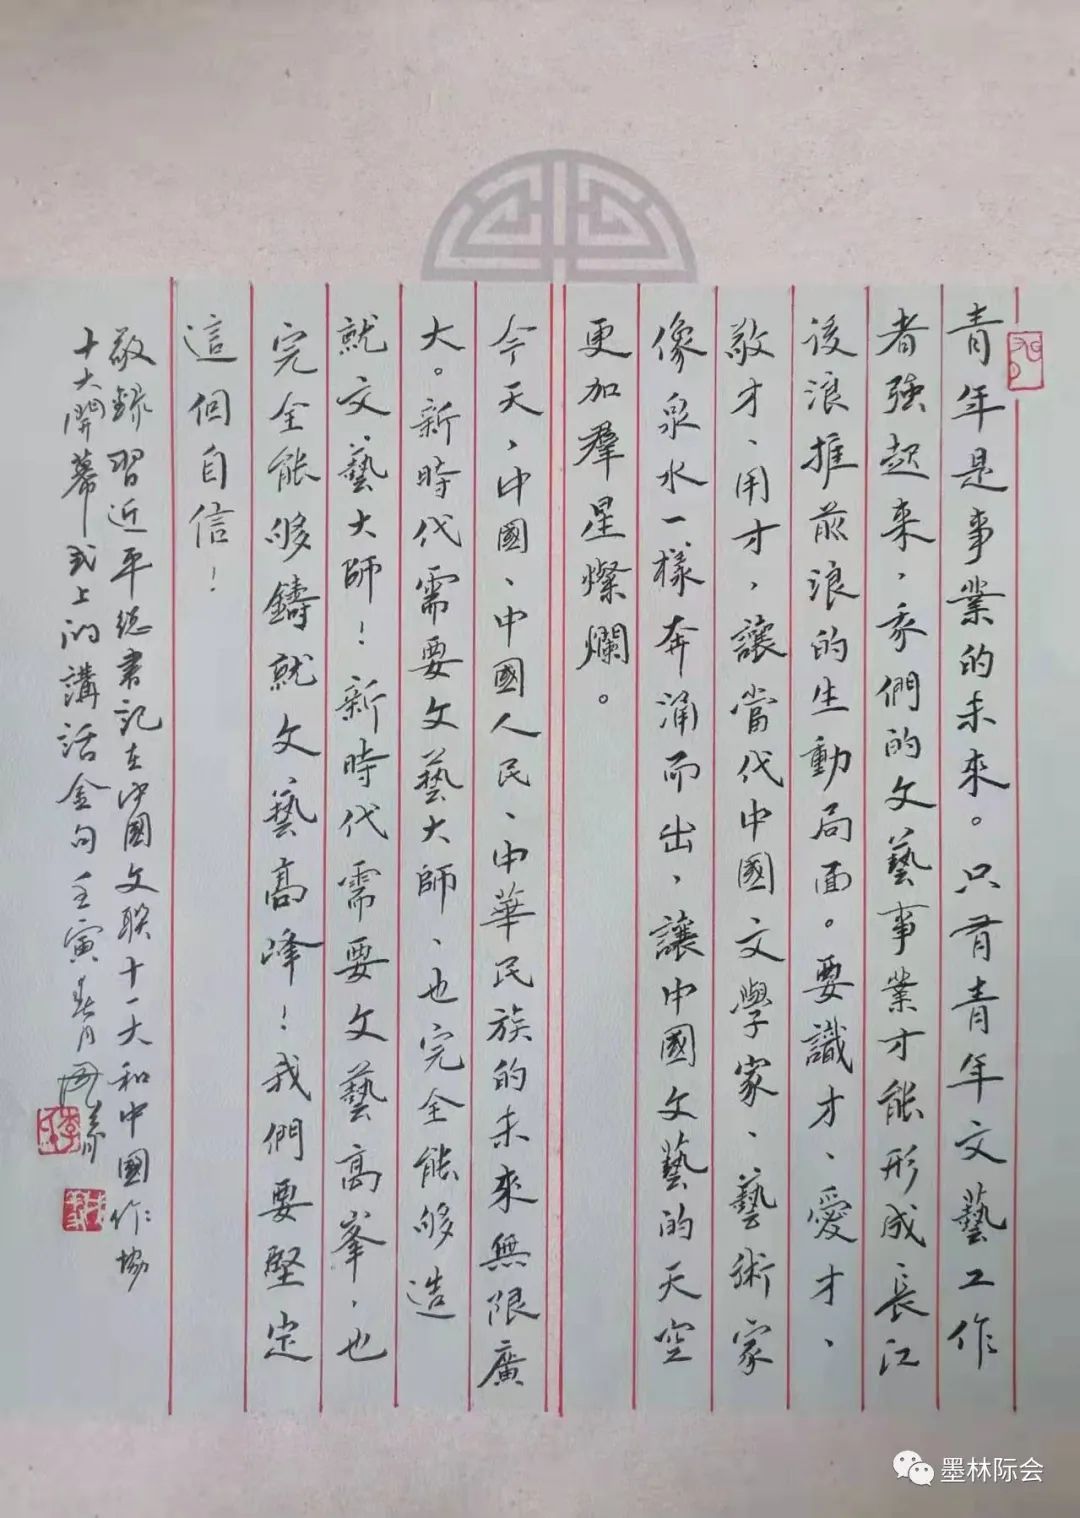 青年是事業的未來。只有青年文藝工作
者強起來，我們的文藝事業才能形成長江
後浪推前浪的生動局面。要識才、愛才、
敬才、用才，讓當代中國文學家、藝術家
像泉水一樣奔涌而出，讓中國文藝的天空
更加羣星燦爛。
今天，中國、中國人民、中華民族的未來無限廣
大。新時代需要文藝大師、也完全能够造
就文藝大師！新時代需要文藝高峯，也
完全能够鑄就文藝高峰！我們要堅定
這個自信！
敬録習近平總書記在中國文联十一大和中國作協
十大開幕式上的講話金句壬寅春月
墨林际会